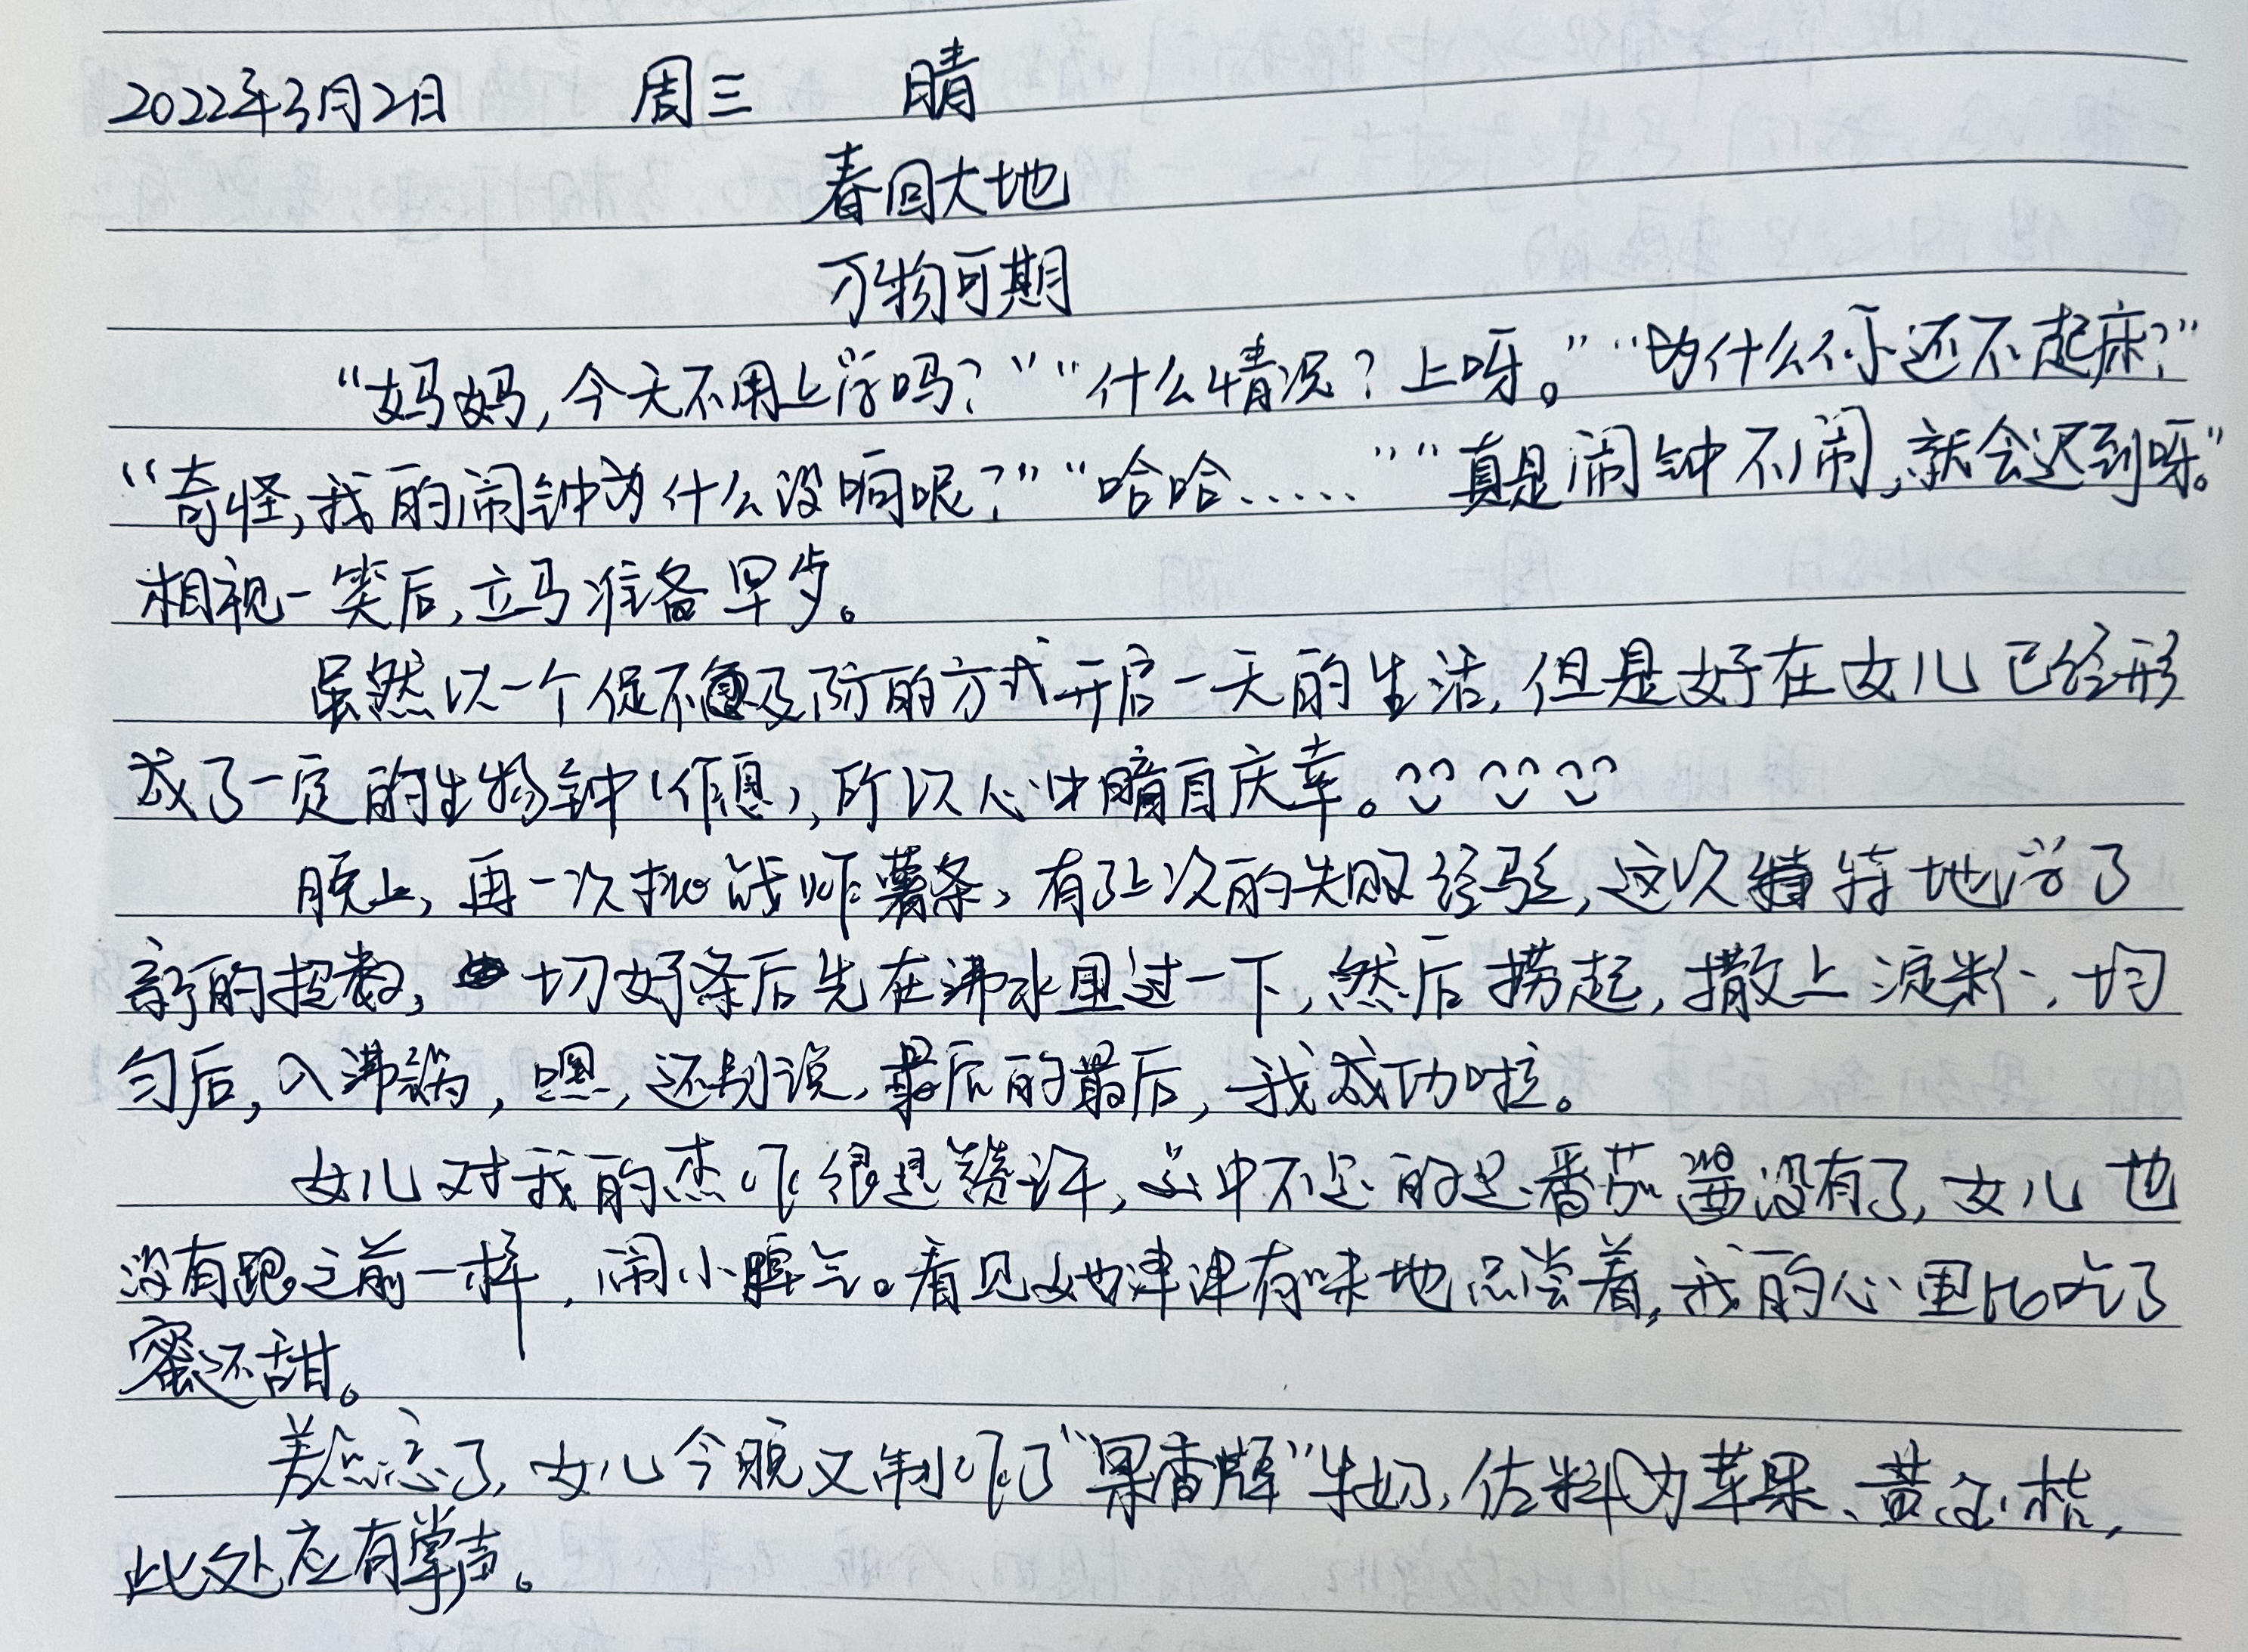 2022年3月2日 周三 晴
春回大地
万物可期
“妈妈,今天不用上学吗?”“什么情况?上呀。”“为什么你还不起床?”
“奇怪,我的闹钟为什么没响呢?”“哈哈……”“真是闹钟不闹,就会迟到呀。”
相视一笑后,立马准备早步。
虽然以一个促不及防的方式开启一天的生活,但是好在女儿已经形
成了一定的生物钟(作息),所以心中暗自庆幸。
晚上,再一次挑战炸薯条,有了上次的失败经验,这次特地学了
新的招数,切好条后先在沸水里过一下,然后捞起,撒上淀粉,均
匀后,入沸锅,嘿,还别说,最后的最后,我成功啦。
女儿对我的杰作很是赞许,美中不足的是番茄酱没有了,女儿也
没有跟之前一样,闹小脾气。看见她津津有味地品尝着,我的心里比吃了
蜜还甜。
差点忘了,女儿今晚又制作了“果香牌”牛奶,佐料为苹果、黄金桔,
此处应有掌声。